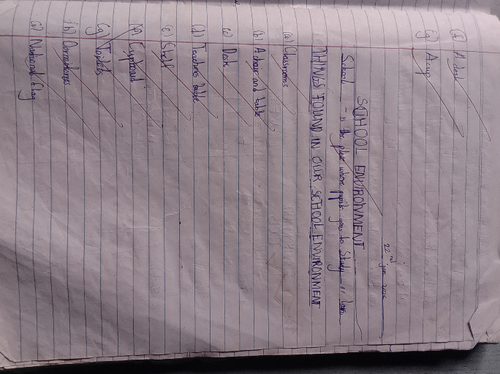 (g) Amp
22nd
SCHOOL ENVIRONMENT
School - is the place where pupils go to study or learn
THINGS FOUND IN OUR SCHOOL ENVIRONMENT
(a) Classrooms
(b) A chair and table
(c) Desk
(d) Teachers table
(e) Shelf
(f) Cupboard
(g) Toilets
(h)
(i) National flag